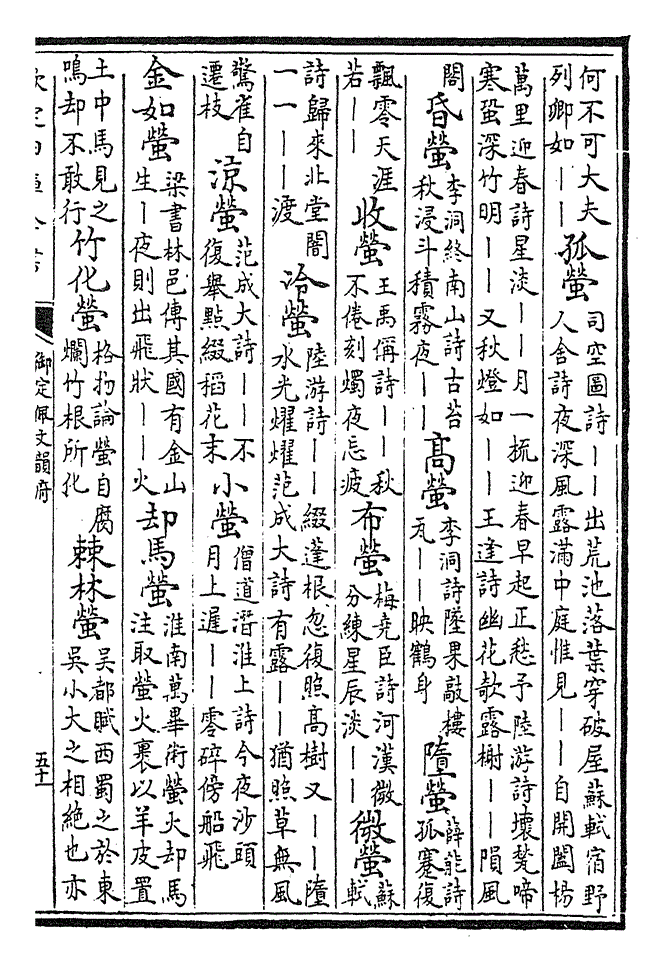 何不可大夫
列卿如丨丨
孤螢
司空圖詩丨丨出荒池落葉穿破屋蘇軾宿野
人舍詩夜深風露滿中庭惟見丨丨自開闔楊
萬里迎春詩星淡丨丨月一梳迎春早起正愁予陸游詩壞甃啼
寒蛩深竹明丨丨又秋燈如丨丨王逢詩幽花欹露榭丨丨隕風
閣
昏螢
李洞終南山詩古苔
秋浸斗積霧夜丨丨
高螢
李洞詩墜果敲樓
瓦丨丨映鶴身
墮螢
薛能詩
孤蹇復
飄零天涯
若丨丨
收螢
王禹偁詩丨丨秋
不倦刻燭夜忘疲
布螢
梅堯臣詩河漢微
分練星辰淡丨丨
微螢
蘇
軾
詩歸來北堂闇
一一丨丨渡
冷螢
陸游詩丨丨綴蓬根忽復照高樹又丨丨墮
水光燿燿范成大詩有露丨丨猶照草無風
驚雀自
遷枝
涼螢
范成大詩丨丨不
復舉點綴稻花末
小螢
僧道潛淮上詩今夜沙頭
月上遲丨丨零碎傍船飛
金如螢
梁書林邑傳其國有金山
生丨夜則出飛狀丨丨火
却馬螢
淮南萬畢術螢火却馬
注取螢火裹以羊皮置
土中馬見之
鳴却不敢行
竹化螢
格物論螢自腐
爛竹根所化
棘林螢
吳都賦西蜀之於東
吳小大之相絶也亦
御定佩文韻府
五十一